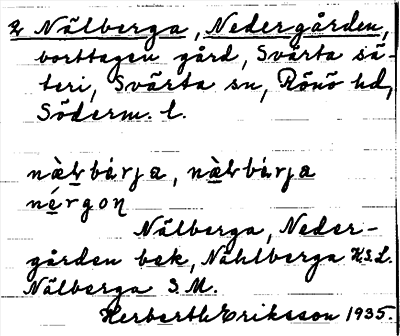 2 Nälberga, Nedergården,
borttagen gård, Svärta sä-
teri, Svärta sn, Rönö hd,
Söderm. l.
næ̀lbárja, næ̀lbárja
nérgoɳ
Nälberga, Neder-
gården bek, Nählberga H.S.L.
Nälberga J.M.
Herberth Eriksson 1935.